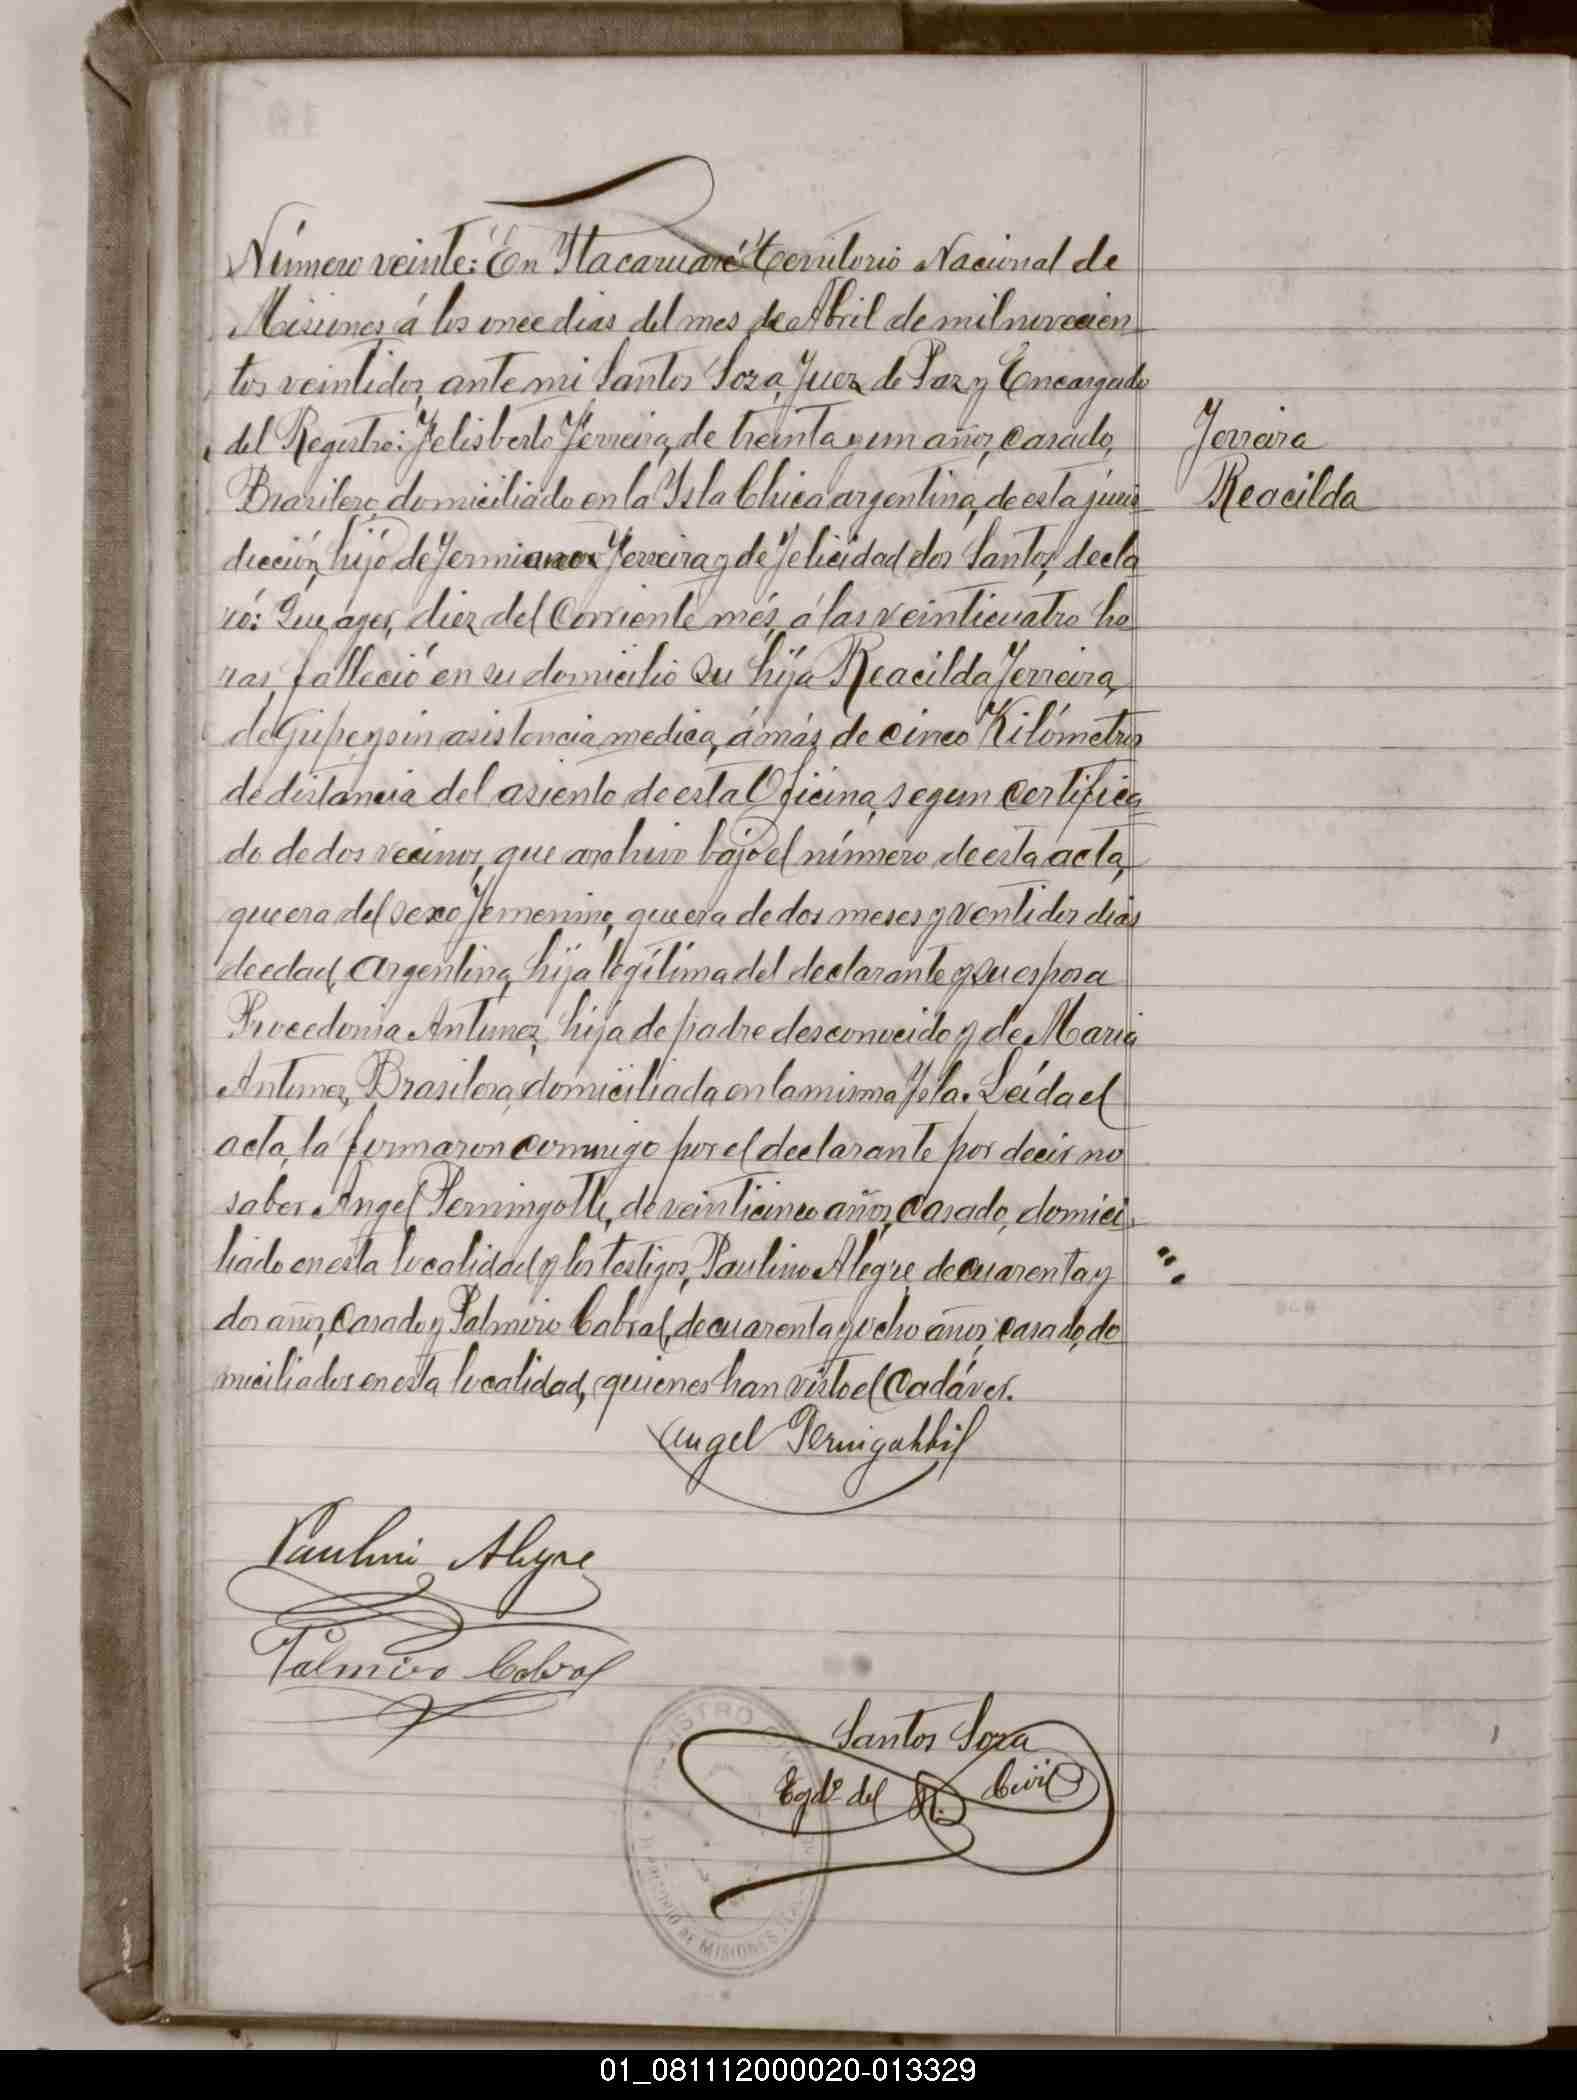 Número veinte: En Itacaruaré Territorio Nacional de
Misiones á los once dias del mes de Abril de mil novecien-
tos veintidos, ante mi Santos Soza, Juez de Paz y Encargado
del Registro: Felisberto Ferreira, de treinta y un años, casado,
Brasilero, domiciliado en la Isla Chica argentina, de esta juris-
dicción, hijo de Fermiano Ferreira y de Felicidad dos Santos, decla
ró: Que ayer, diez del Corriente més, á las veinticuatro ho
ras, falleció en su domicilio su hija Reacilda Ferreira,
de Gripe, y sin asistencia medica, á más de cinco Kilómetros
de distancia del asiento de esta Oficina, segun certifica
do de dos vecinos, que archivo bajo el número de esta acta,
que era del sexo Femenino, que era de dos meses y ventidos dias
de edad, Argentina, hija legítima del declarante y su esposa
Procedonia Antunez, hija de padre desconocido y de Maria
Antunez, Brasilera, domiciliada en la misma Isla. Leída el
acta, la firmaron conmigo por el declarante por decir no
saber Angel Perningotti, de veinticinco años, Casado, domici-
liado en esta localidad y los testigos, Paulino Alegre, de cuarenta y
dos años, Casado y Palmiro Cabral, de cuarenta y ocho años, casado, do
miciliados en esta localidad, quienes han visto el Cadáver.
Ferreira
Reacilda
Angel
Paulino Alegre
Palmiro Cabral
Santos Soza
Egdo. del R. Civil
REGISTRO
DE MISIONES
01_081112000020-013329